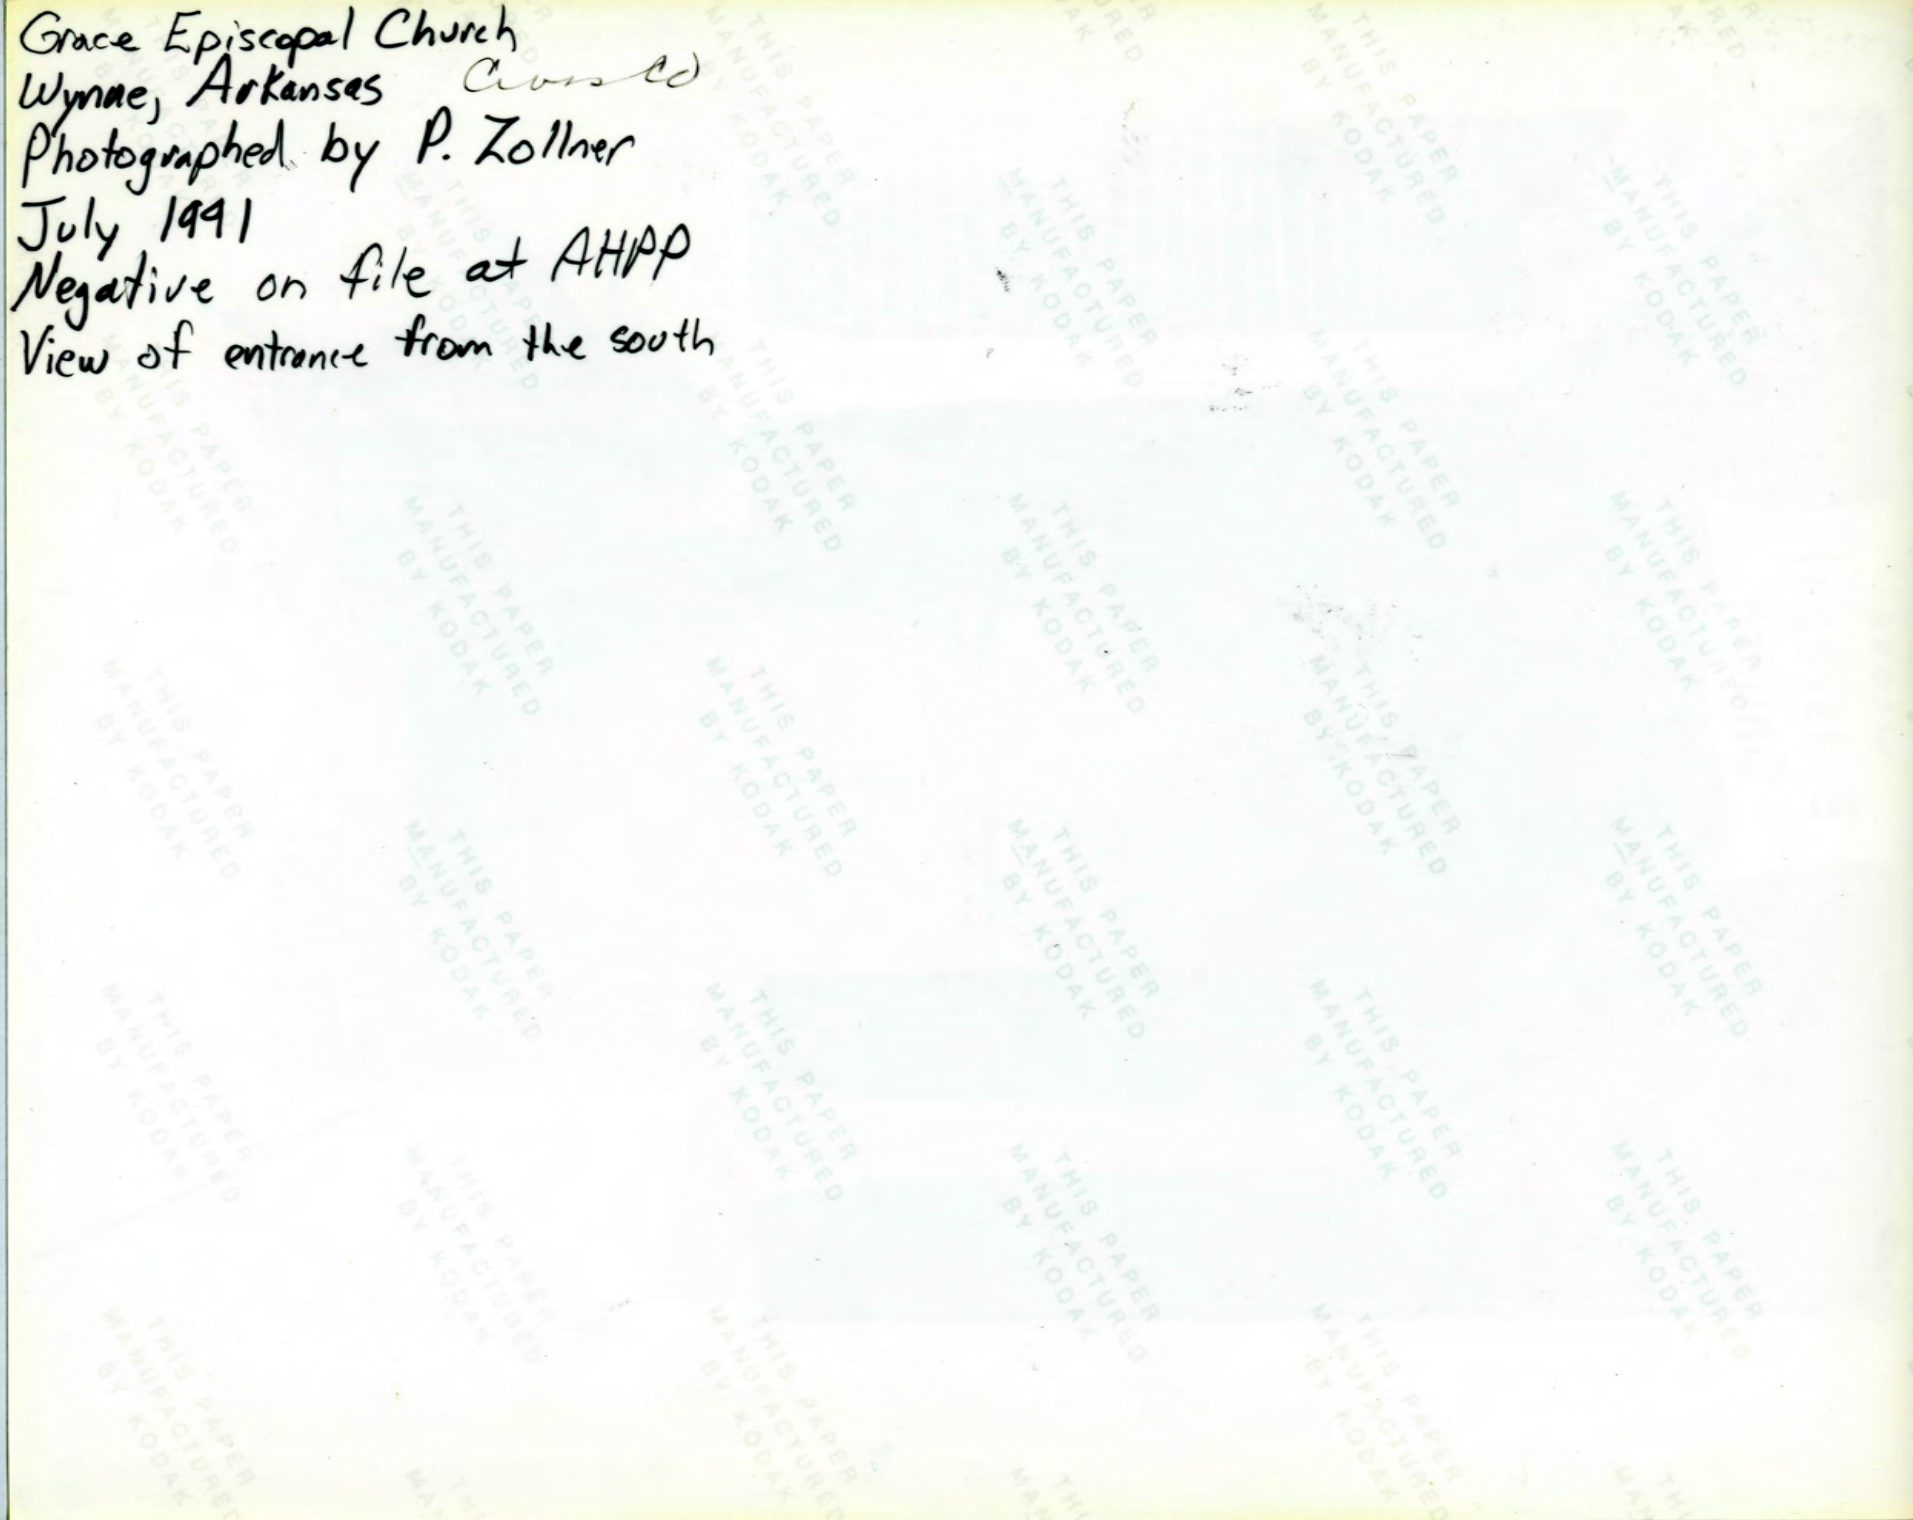 Grace Episcopal Church
Wynne, Arkansas Cross Co
Photographed by P. Zollner
July 1991
Negative on file at AHPP
View of entrance from the south
THIS PAPER
MANUFACTURED
BY KODAK